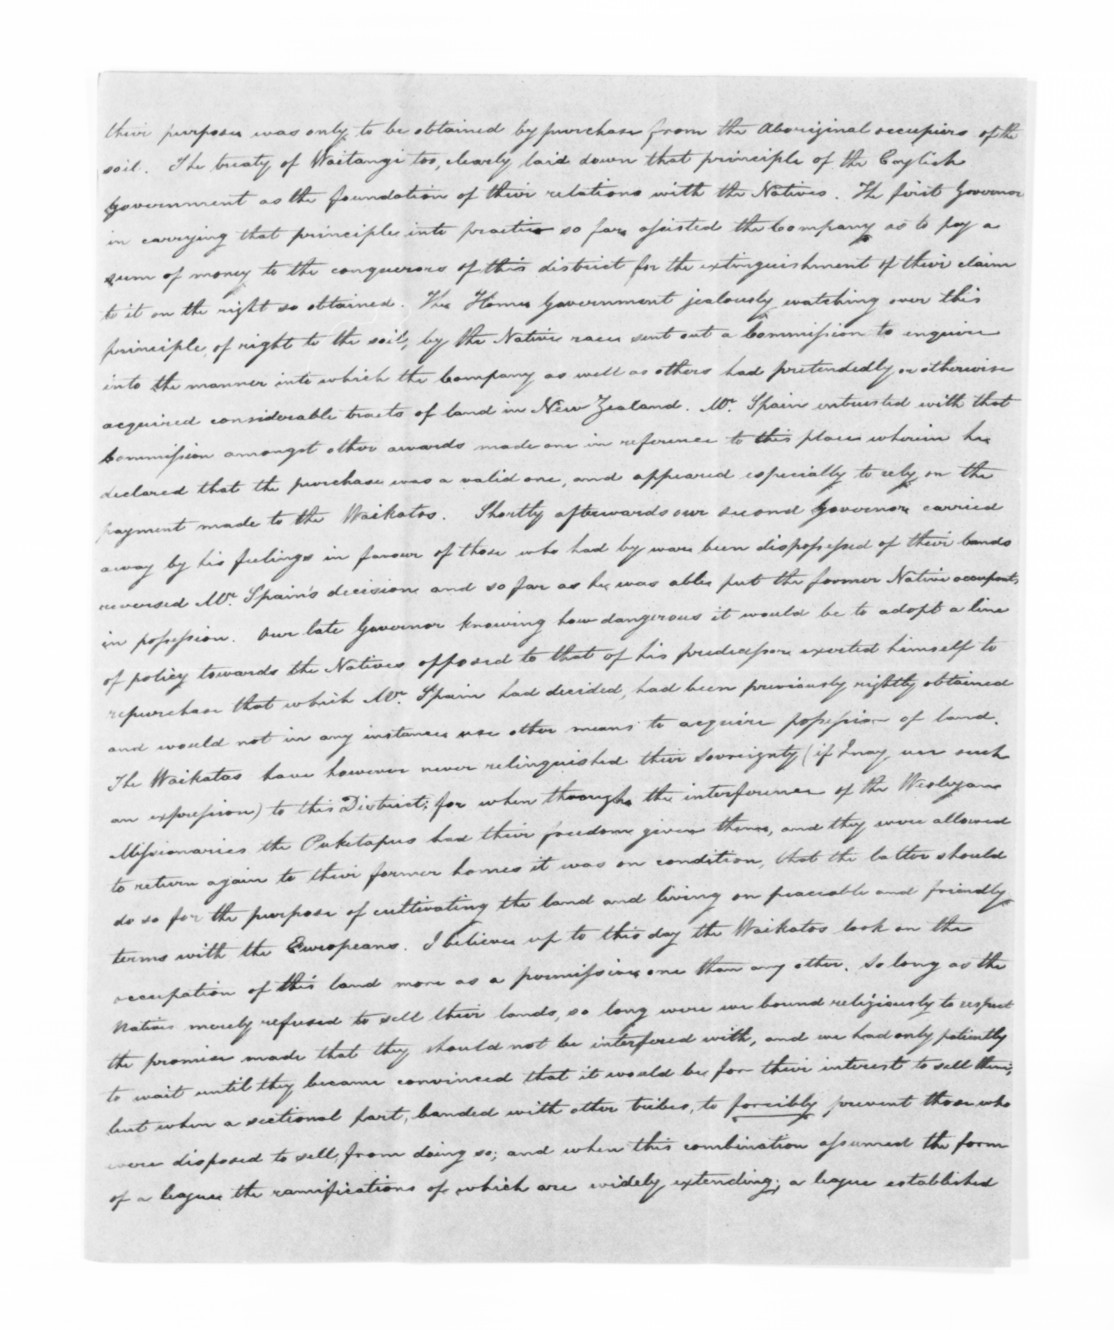 their purposes was only to be obtained by purchase from the Aboriginal occupiers of the
soil. The treaty of Waitangi too, clearly laid down that principle of the English
Government as the foundation of their relations with the Natives. The first Governor
in carrying that principle into practice so far assisted the Company as to pay a
sum of money to the conquerors of this district for the extinguishment of their claim
to it on the right so obtained. The Home Government jealously watching over this
principle, of right to the soil, by the Native race sent out a Commission to enquire
into the manner into which the Company as well as others had pretendedly or otherwise
acquired considerable tracts of land in New Zealand. Mr. Spain intrusted with that
Commission amongst other awards made one in reference to this place wherein he
declared that the purchase was a valid one, and appeared especially to rely on the
payment made to the Waikatos. Shortly afterwards our second Governor carried
away by his feelings in favour of those who had by war been dispossessed of their lands
reversed Mr. Spain's decision and so far as he was able put the former Native occupants
in possession. Our late Governor knowing how dangerous it would be to adopt a line
of policy towards the Natives opposed to that of his predecessor exerted himself to
repurchase that which Mr. Spain had decided, had been previously rightly obtained
and would not in any instance use other means to acquire possession of land.
The Waikatos have however never relinquished their sovereignty (if I may use such
an expression) to this District; for when through the interference of the Wesleyan
Missionaries the Puketapus had their freedom given them, and they were allowed
to return again to their former homes it was on condition, that the latter should
do so for the purpose of cultivating the land and living on peaceable and friendly
terms with the Europeans. I believe up to this day the Waikatos look on the
occupation of this land more as a permissive one than any other. So long as the
Natives merely refused to sell their lands, so long were we bound religiously to respect
the promise made that they should not be interfered with, and we had only patiently
to wait until they became convinced that it would be for their interest to sell them;
but when a sectional part, banded with other tribes, to forcibly prevent those who
were disposed to sell, from doing so; and when this combination assumed the form
of a league the ramifications of which are widely extending; a league established